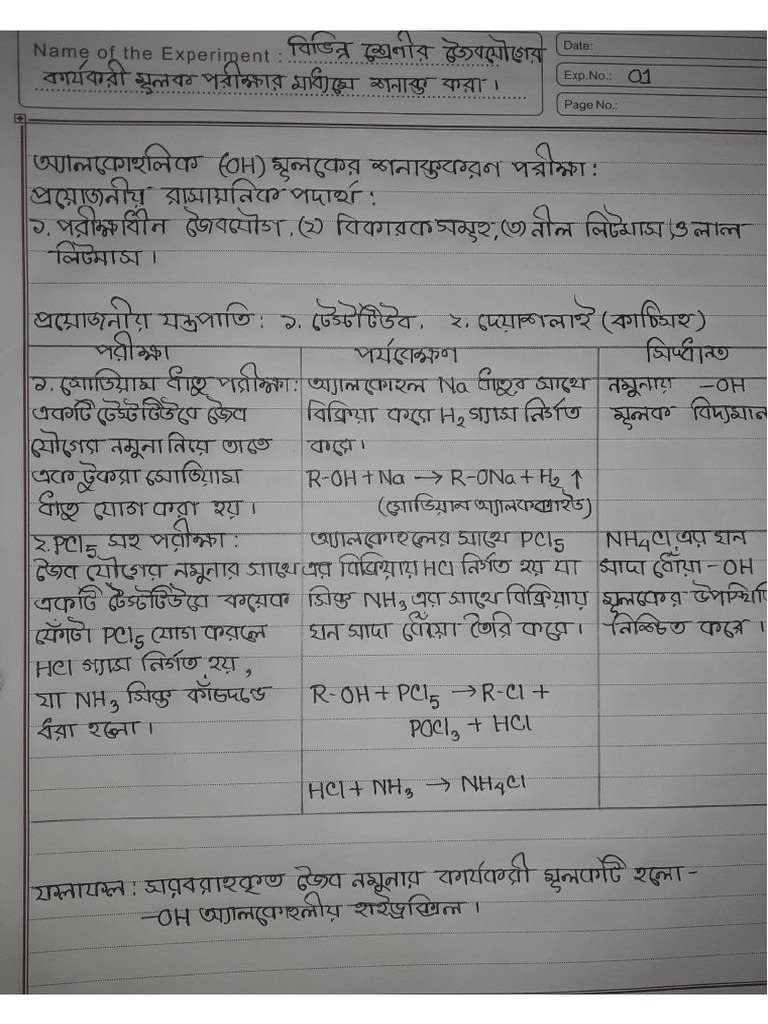 Name of the Experiment : বিভিন্ন শ্রেনীর জৈবযৌগের
কার্যকরী মূলক পরীক্ষার মাধ্যমে শনাক্ত করা।
Date:
Exp.No.: 01
Page No.:
অ্যালকোহলিক (OH) মূলকের শনাক্তকরন পরীক্ষা :
প্রয়োজনীয় রাসায়নিক পদার্থ :
১. পরীক্ষাধীন জৈবযৌগ, (২) বিকারক সমূহ, (৩) নীল লিটমাস ও লাল
লিটমাস।
প্রয়োজনীয় যন্ত্রপাতি : ১. টেস্টটিউব, ২. দেয়াশলাই (কাঠিসহ)
পরীক্ষা
১. সোডিয়াম ধাতু পরীক্ষা :
একটি টেস্টটিউবে জৈব
যৌগের নমুনা নিয়ে তাতে
এক টুকরা সোডিয়াম
ধাতু যোগ করা হয়।
পর্যবেক্ষণ
অ্যালকোহল Na ধাতুর সাথে
বিক্রিয়া করে H₂ গ্যাস নির্গত
করে।
R-OH + Na → R-ONa + H₂ ↑
(সোডিয়াম অ্যালকক্সাইড)
সিদ্ধান্ত
নমুনায় -OH
মূলক বিদ্যমান
২. PCl₅ সহ পরীক্ষা :
জৈব যৌগের নমুনার সাথে
একটি টেস্টটিউবে কয়েক
ফোঁটা PCl₅ যোগ করলে
HCl গ্যাস নির্গত হয়,
যা NH₃ সিক্ত কাঁচদন্ডে
ধরা হলো।
অ্যালকোহলের সাথে PCl₅
এর বিক্রিয়ায় HCl নির্গত হয় যা
সিক্ত NH₃ এর সাথে বিক্রিয়ায়
ঘন সাদা ধোঁয়া তৈরি করে।
R-OH + PCl₅ → R-Cl +
POCl₃ + HCl
HCl + NH₃ → NH₄Cl
NH₄Cl এর ঘন
সাদা ধোঁয়া -OH
মূলকের উপস্থিতি
নিশ্চিত করে।
ফলাফল : সরবরাহকৃত জৈব নমুনার কার্যকরী মূলকটি হলো -
-OH অ্যালকোহলীয় হাইড্রক্সিল।